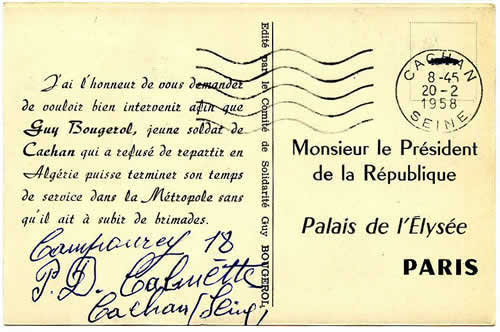 J'ai l'honneur de vous demander
de vouloir bien intervenir afin que
Guy Bougerol, jeune soldat de
Cachan qui a refusé de repartir en
Algérie puisse terminer son temps
de service dans la Métropole sans
qu'il ait à subir de brimades.
18
P. D. Calmette
Cachan (Seine)
Edité par le Comité de Solidarité Guy BOUGEROL
CACHAN
8-45
20-2
1958
SEINE
Monsieur le Président
de la République
Palais de l'Élysée
PARIS